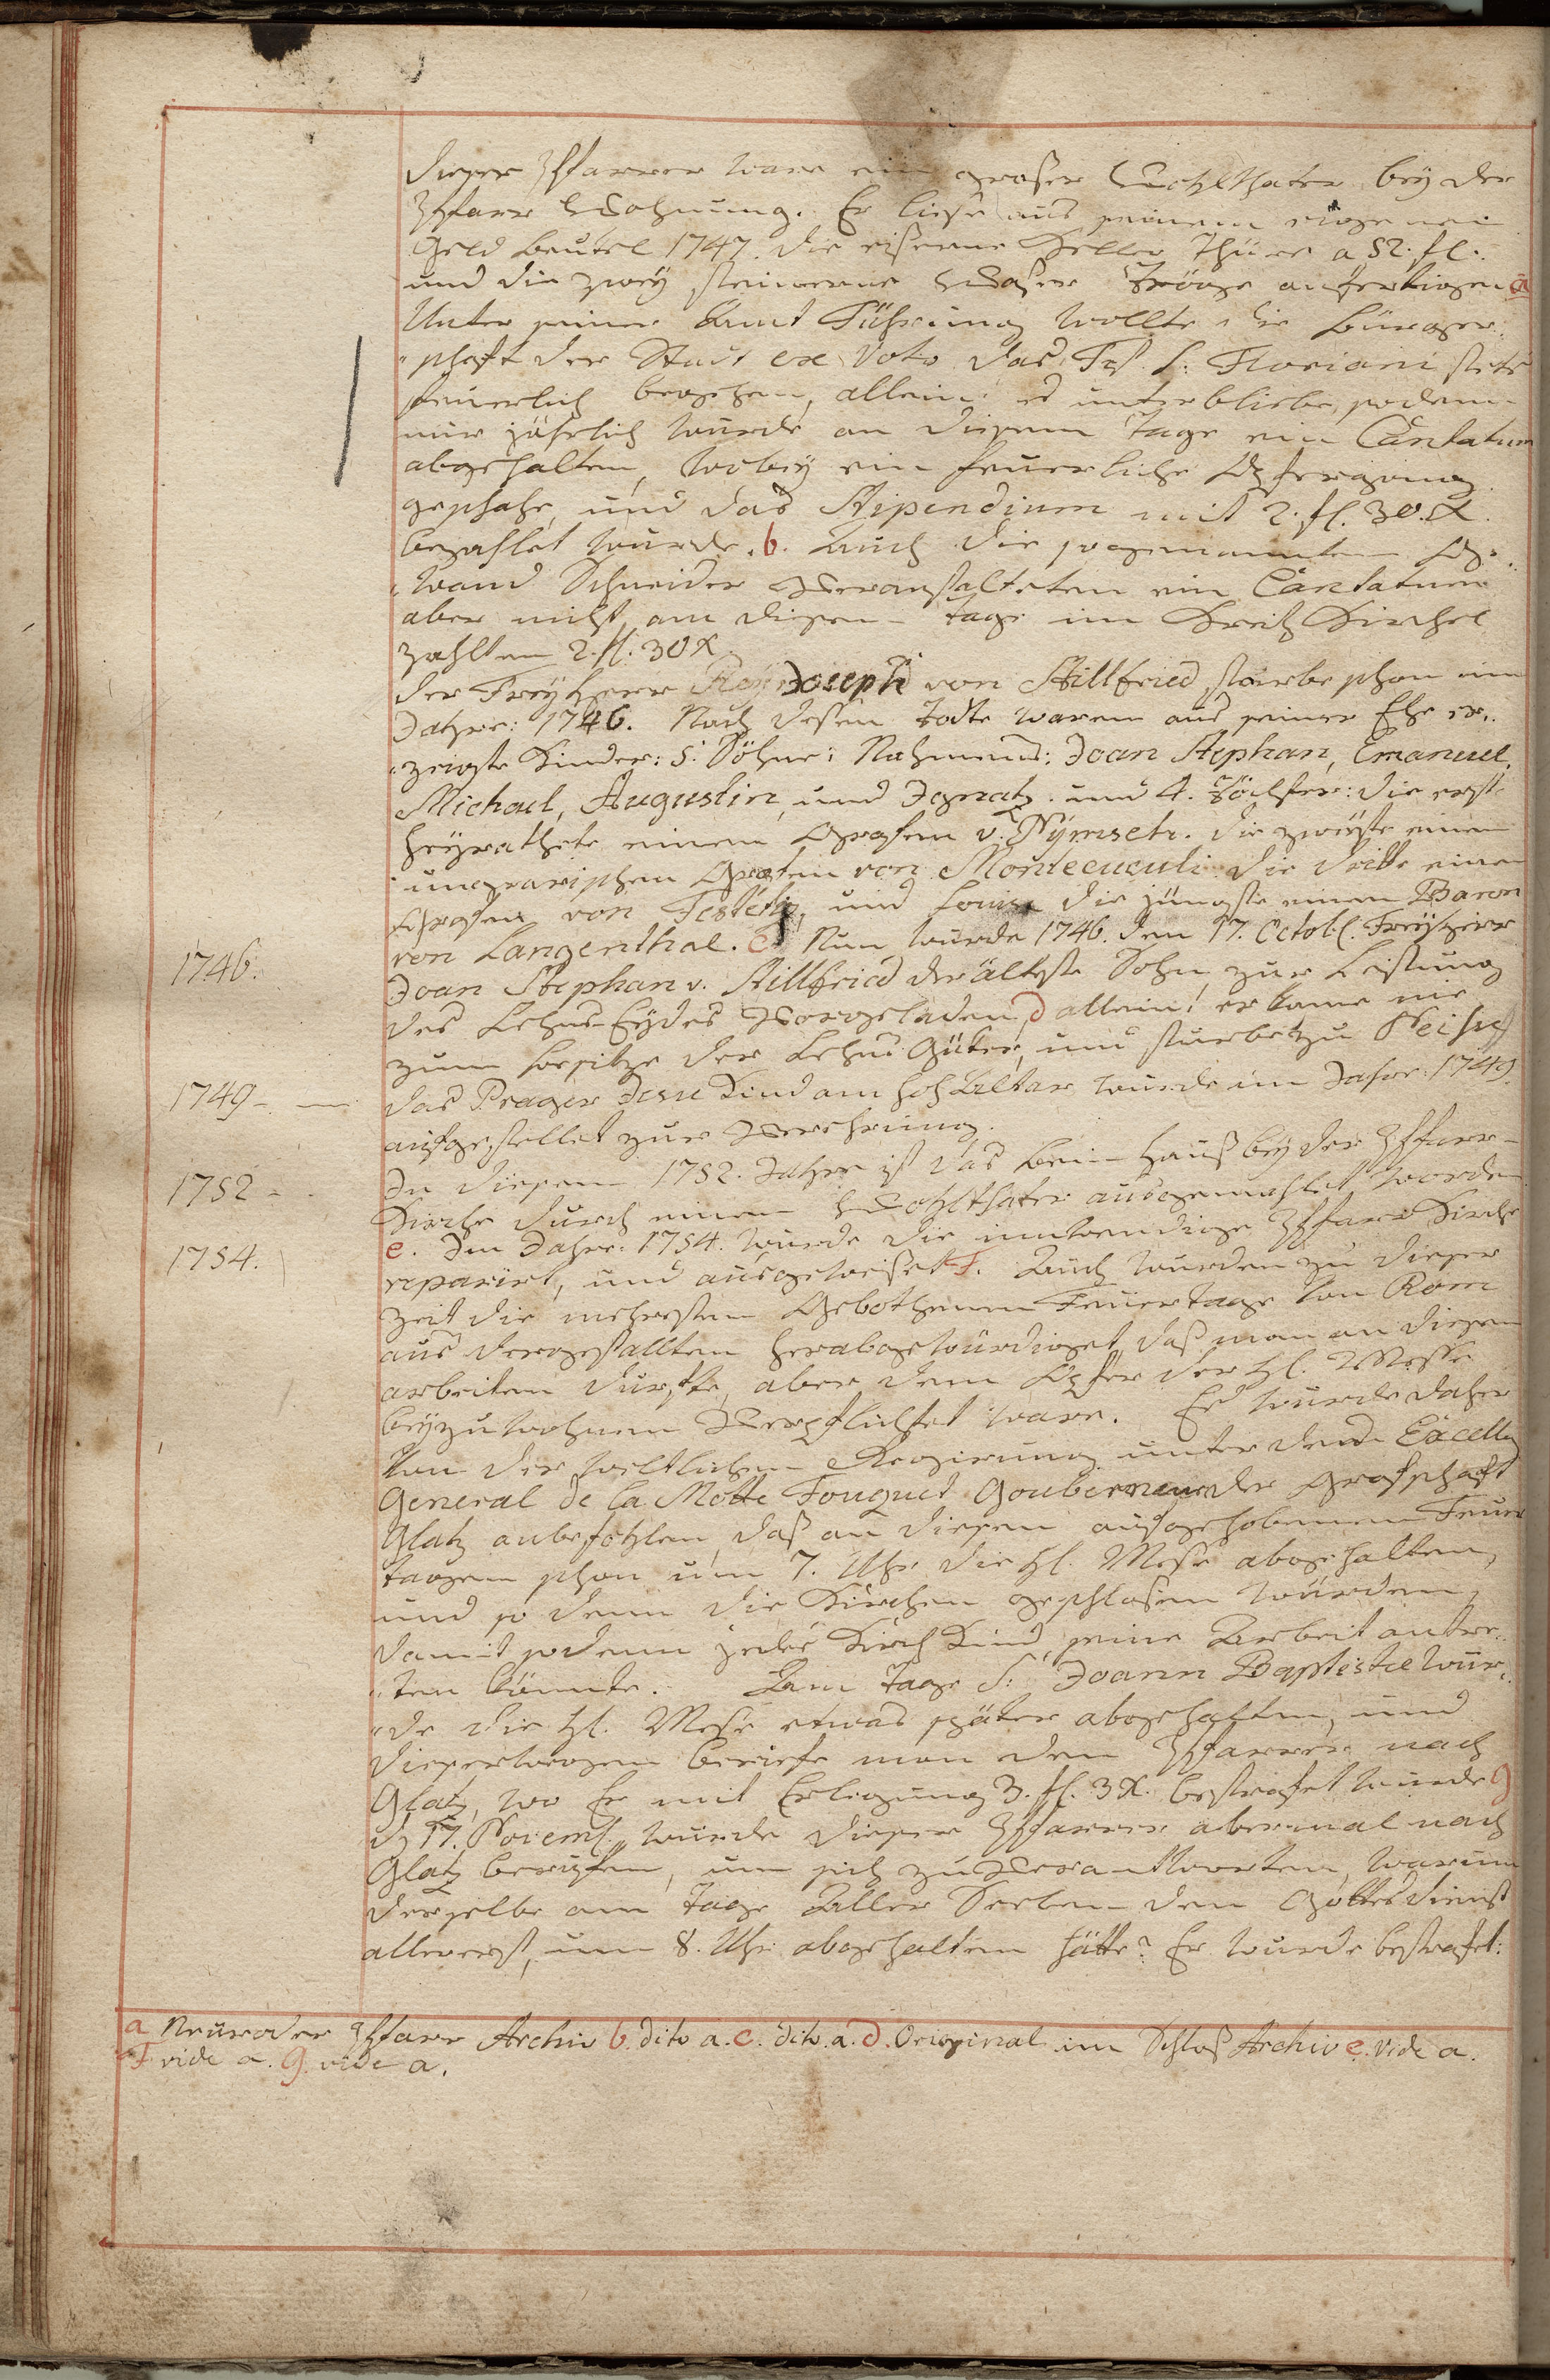 dieser Pfarrer ware ein großer Wohlthater bey der
Pfarr Wohnung. Er liese aus seinem eigenen
Geld Beutel 1747. die eiserne Keller Thüre a 52. fl.
und die zwey steinerne Waßer Tröge anfertigen a
Unter seiner Amt Führung wollte die Bürger„
„schaft der Stadt ex Voto das Fest S: Floriani stets
feuerlich begehen, allein: es unterbliebe, sondern
nur jährlich wurde an diesem Tage ein Cantatum
abgehalten, wobey ein feuerliche Opfergang
geschahe, und das Stipendium mit 2. fl. 30. x.
bezahlet wurde. b. Auch die sogenannten Ge„
„wand Schneider veranstalteten ein Cantatum
aber nicht an diesem Tage im Kreitz Kirchel
zahlten 2. fl. 30 x.
der Freyherr Joseph von Stillfried starbe schon im
Jahre: 1746. Nach deßen Todte waren aus seiner Ehe er„
„zeugte Kinder: 5. Söhne: Nahmens: Joan Stephan, Emanuel,
Michael, Augustin, und Ignatz. und 4. Töchter: die erste
heyrathete einen Grafen v. Nÿmsch. die zweyte einen
ungarischen Grafen von Montecuculi die dritte einen
Grafen von Festetiz, und Louise die jüngste einen Baron
von Langenthal. c. Nun wurde 1746. den 17. Octobl. Freyherr
1746.
Joan Stephan v. Stillfried der älteste Sohn zur Leistung
des Lehns-Eydes Vorgeladen, d allein! er kame nie
zum besitze der Lehns Güter, und sturbe zu Neiße
1749 -
das Prager Jesu Kind am hoh Altar wurde im Jahre 1749.
aufgestellet zur Verehrung.
1752 -
In diesem 1752. Jahre ist das Bein Hauß bey der Pfarr-
Kirche durch einen Wohlthater ausgemahlet worden
e. Im Jahre: 1754. wurde die innwendige Pfarr Kirche
1754.
reparirt, und ausgeweiset F. Auch wurden zu dieser
Zeit die mehresten Gebothenen Feuertage von Rom
aus dergestallten herabgewürdiget, daß man an diesen
arbeiten durfte, aber dem Opfer der hl. Messe
beyzuwohnen Verpflichtet ware. Es wurde daher
von der weltlichen Regirung unter dem Excellz
General de la Motte Fouquet Gouberneur der Grafschaft
Glatz anbefohlen, daß an diesen aufgehobenen Feuer
tagen schon um 7. Uhr die hl. Meße abgehalten,
und so denn die Kirchen geschloßen wurden,
damit sodenn jedes Kirch Kind seine Arbeit antre„
„ten könnte. Am Tage S: Joann Baptistae wur„
„de die hl. Meße etwas später abgehalten, und
dieserwegen beriefe man den Pfarrer nach
Glatz, wo Er mit Erlegung 3. fl. 3 x. bestrafet wurde g
d 17. Novembl. wurde dieser Pfarrer abermal nach
Glatz berufen, um sich zu Verantworten, warum
derselbe am Tage Aller Seelen den Gottesdienst
allererst, um 8. Uhr abgehalten hätte? Er wurde bestrafet:
a Neuroder Pfarr Archiv b. dito a. c. dito a. d. Original im Schloß Archiv e. vide a.
F vide a. g. vide a.